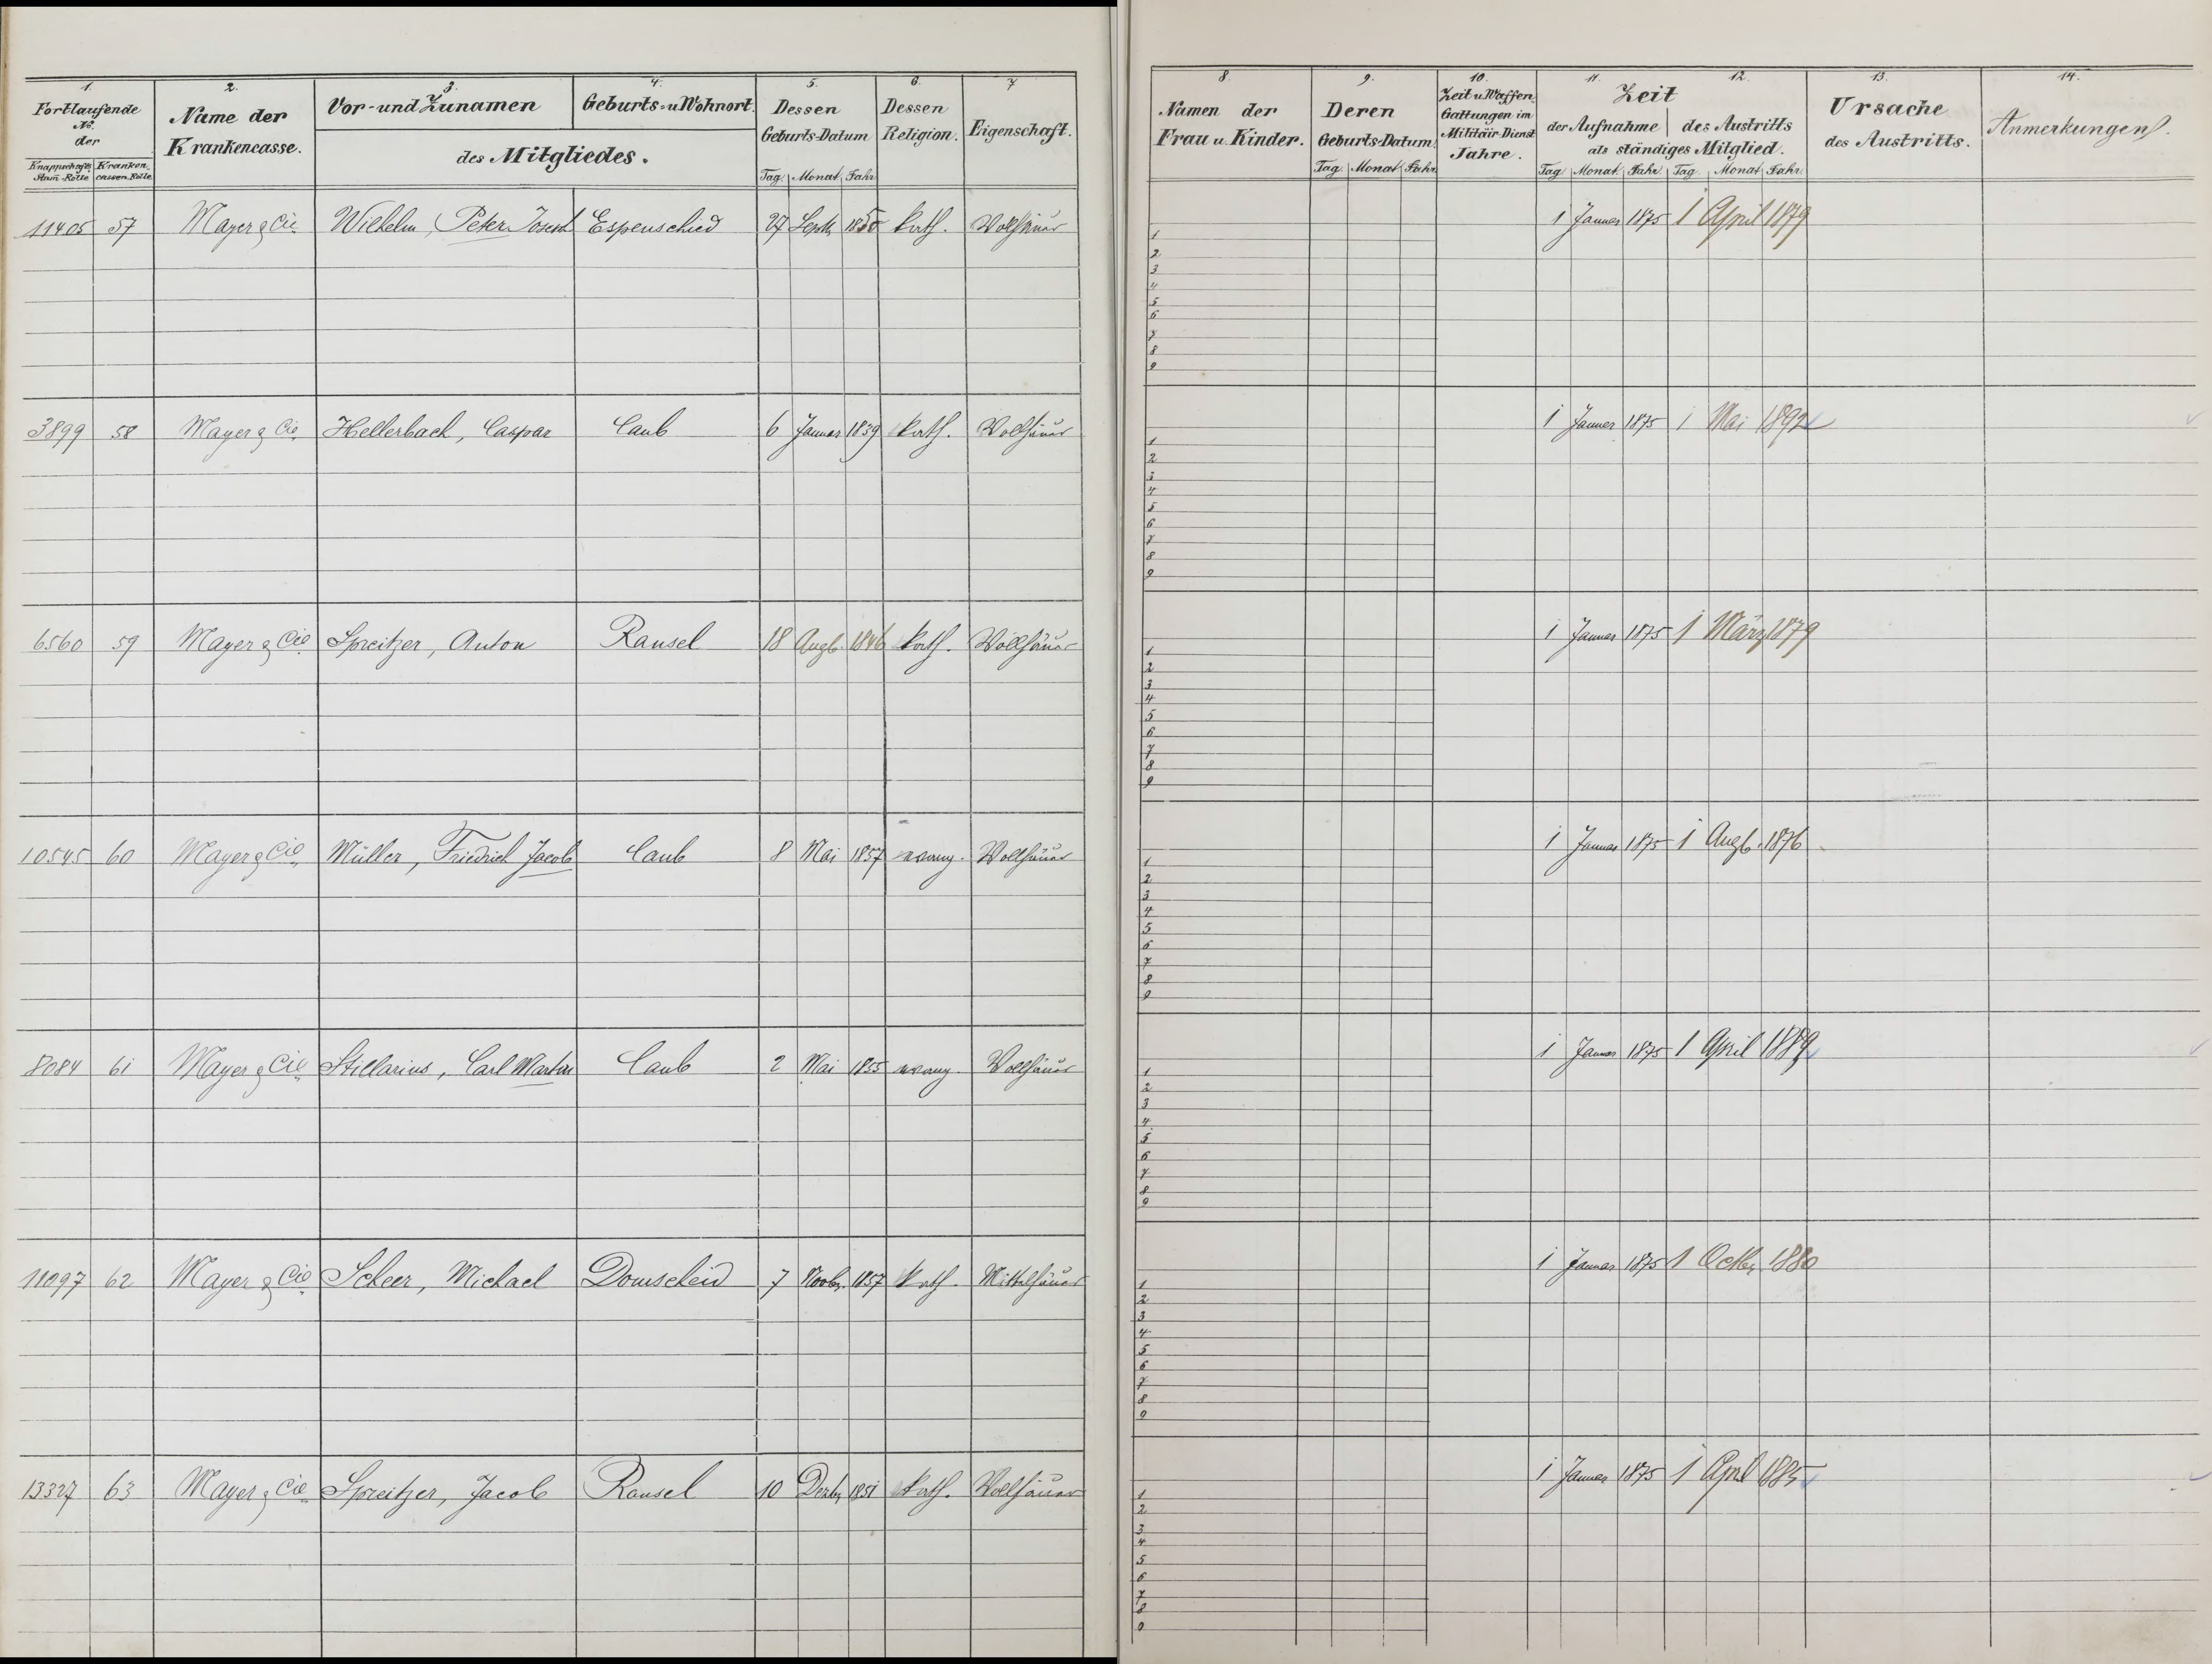 1. 2. 3. 4. 5. 6. 7
Fortlaufende No. der
Knappschafts Stam-Rolle Kranken cassen-Rolle
Name der Krankencasse.
Vor- und Zunamen Geburts- u Wohnort.
des Mitgliedes.
Dessen Geburts-Datum
Tag. Monat. Jahr.
Dessen Religion.
Eigenschaft.
11405 57 Mayer & Cie Wilhelm, Peter Josef Espenschied 27 Septb. 1850 kath. Vollhäuer
3899 58 Mayer & Cie Hellerbach, Caspar Caub 6 Januar 1839 kath. Vollhäuer
6560 59 Mayer & Cie Spreitzer, Anton Ransel 18 Augb. 1846 kath. Vollhäuer
10545 60 Mayer & Cie Müller, Friedrich Jacob Caub 8 Mai 1857 evang. Vollhäuer
8084 61 Mayer & Cie Stillarius, Carl Martin Caub 2 Mai 1855 evang. Vollhäuer
11097 62 Mayer & Cie Scheer, Michael Domscheid 7 Novbr. 1857 kath. Mittelhäuer
13327 63 Mayer & Cie Spreitzer, Jacob Ransel 10 Dezbr 1851 kath. Vollhäuer
8. 9. 10. 11. 12. 13. 14.
Namen der Frau u. Kinder.
Deren Geburts-Datum.
Tag. Monat. Jahr.
Zeit u Waffen Gattungen im Militair-Dienst Jahre.
Zeit
der Aufnahme des Austritts
als ständiges Mitglied.
Tag. Monat. Jahr. Tag. Monat. Jahr.
Ursache des Austritts.
Anmerkungen.
1 Januar 1875 1 April 1879
1
2
3
4
5
6
7
8
9
1 Januar 1875 1 Mai 1892
1
2
3
4
5
6
7
8
9
1 Januar 1875 1 März 1879
1
2
3
4
5
6
7
8
9
1 Januar 1875 1 Augb. 1876
1
2
3
4
5
6
7
8
9
1 Januar 1875 1 April 1889
1
2
3
4
5
6
7
8
9
1 Januar 1875 1 Octbr 1880
1
2
3
4
5
6
7
8
9
1 Januar 1875 1 April 1885
1
2
3
4
5
6
7
8
9